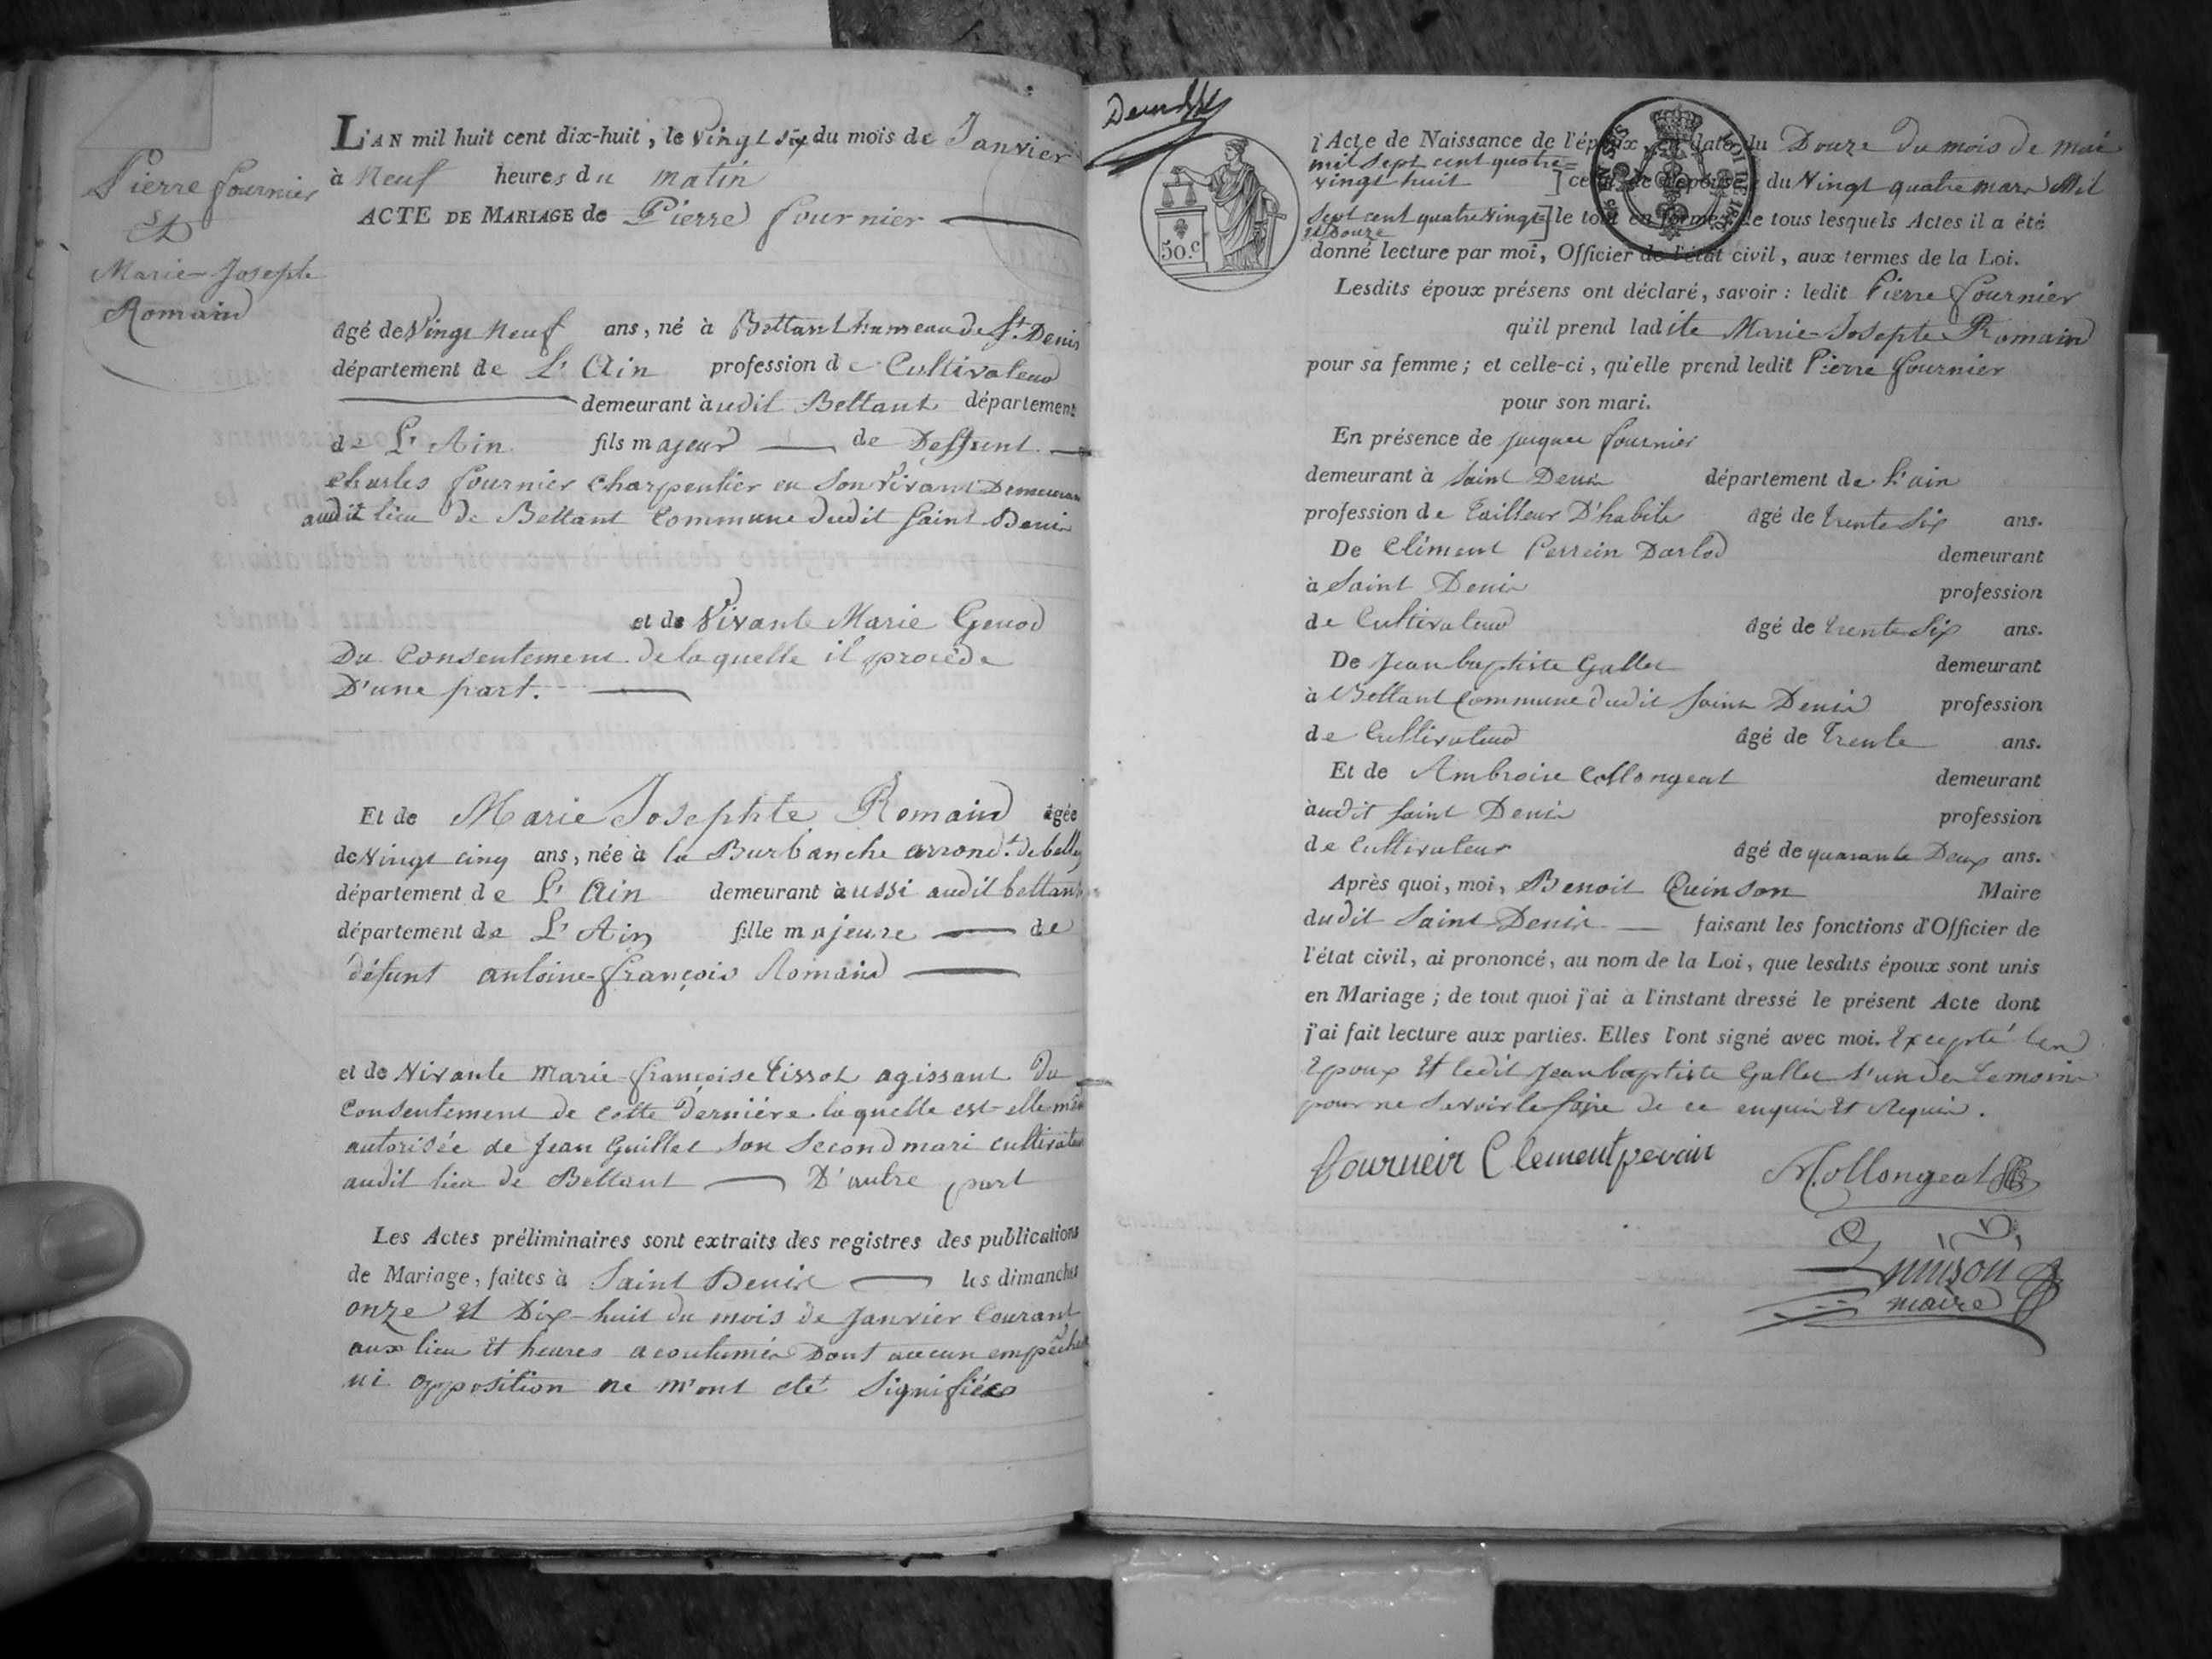 Pierre fournier
Et
Marie-Josephte
Romain
L'AN mil huit cent dix-huit, le vingt six du mois de Janvier
à Neuf heures du matin
ACTE DE MARIAGE de Pierre fournier
âgé de Vingt Neuf ans, né à Bettant hameau de St. Denis
département de L'Ain profession de Cultivateur
demeurant àudit Bettant département
de L'Ain fils majeur de Deffunt
Charles fournier Charpentier en Son Vivant Demeurant
audit lieu de Bettant Commune dudit Saint Denis
et de Vivante Marie Genod
Du Consentement de laquelle il procède
D'une part.
Et de Marie Josephte Romain âgée
de Vingt cinq ans, née à la Burbanche arrond.t de belley
département de L'Ain demeurant àussi audit bettant
département de L'Ain fille majeure de
défunt antoine-françois Romain
et de Vivante Marie françoise tissot agissant du
Consentement de cette dernière laquelle est elle même
autorisée de Jean Guillet Son Second mari cultivateur
audit lieu de Bettant D'autre part
Les Actes préliminaires sont extraits des registres des publications
de Mariage, faites à Saint Denis les dimanches
onze et Dix-huit du mois de Janvier Courant
aux lieu et heures acoutumés Dont aucun empêche
ni opposition ne m'ont été Signifiées
50.c
LOI DE 1816
l'Acte de Naissance de l'époux, en date du Douze du mois de mai
mil sept cent quatre=
vingt huit ] celui de l'épouse du Vingt quatre mars Mil
Sept cent quatre Vingt=] le tout en forme; de tous lesquels Actes il a été
et Douze
donné lecture par moi, Officier de l'état civil, aux termes de la Loi.
Lesdits époux présens ont déclaré, savoir: ledit Pierre fournier
qu'il prend ladite Marie-Josephte Romain
pour sa femme; et celle-ci, qu'elle prend ledit Pierre fournier
pour son mari.
En présence de Jacques fournier
demeurant à Saint Denis département de L'ain
profession de Tailleur D'habits âgé de trente Six ans.
De Clément Perrin Darlod demeurant
à Saint Denis profession
de Cultivateur âgé de trente Six ans.
De Jean baptiste Gallet demeurant
à Bettant Commune dudit Saint Denis profession
de Cultivateur âgé de Trente ans.
Et de Ambroise Collongeat demeurant
àudit Saint Denis profession
de Cultivateur âgé de quarante Deux ans.
Après quoi, moi, Benoit Quinson Maire
dudit Saint Denis faisant les fonctions d'Officier de
l'état civil, ai prononcé, au nom de la Loi, que lesdits époux sont unis
en Mariage; de tout quoi j'ai à l'instant dressé le présent Acte dont
j'ai fait lecture aux parties. Elles l'ont signé avec moi. Excepté les
Epoux Et ledit Jean baptiste Gallet l'un des temoins
pour ne Savoir le faire de ce enquis Et Requis.
fourneir Clement perain Collongeat
Quinson
maire